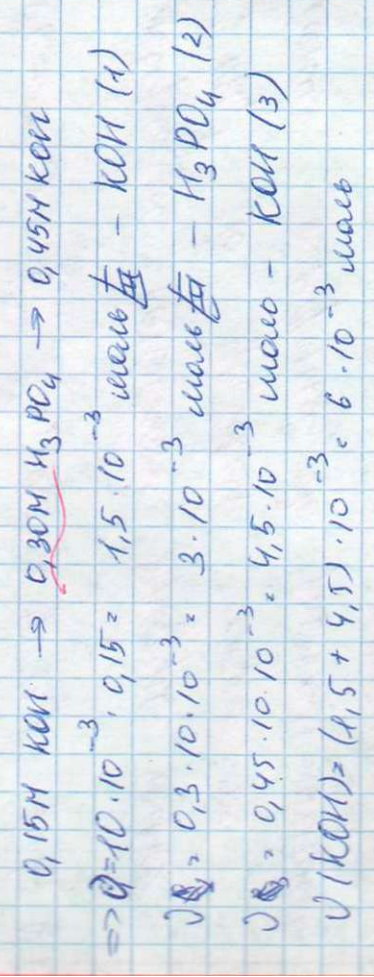 0,15М КОН → 0,30М H₃PO₄ → 0,45М КОН
=> ν = 10·10⁻³·0,15 = 1,5·10⁻³ моль – КОН (1)
ν = 0,3·10·10⁻³ = 3·10⁻³ моль – H₃PO₄ (2)
ν = 0,45·10·10⁻³ = 4,5·10⁻³ моль – КОН (3)
ν(КОН) = (1,5 + 4,5)·10⁻³ = 6·10⁻³ моль